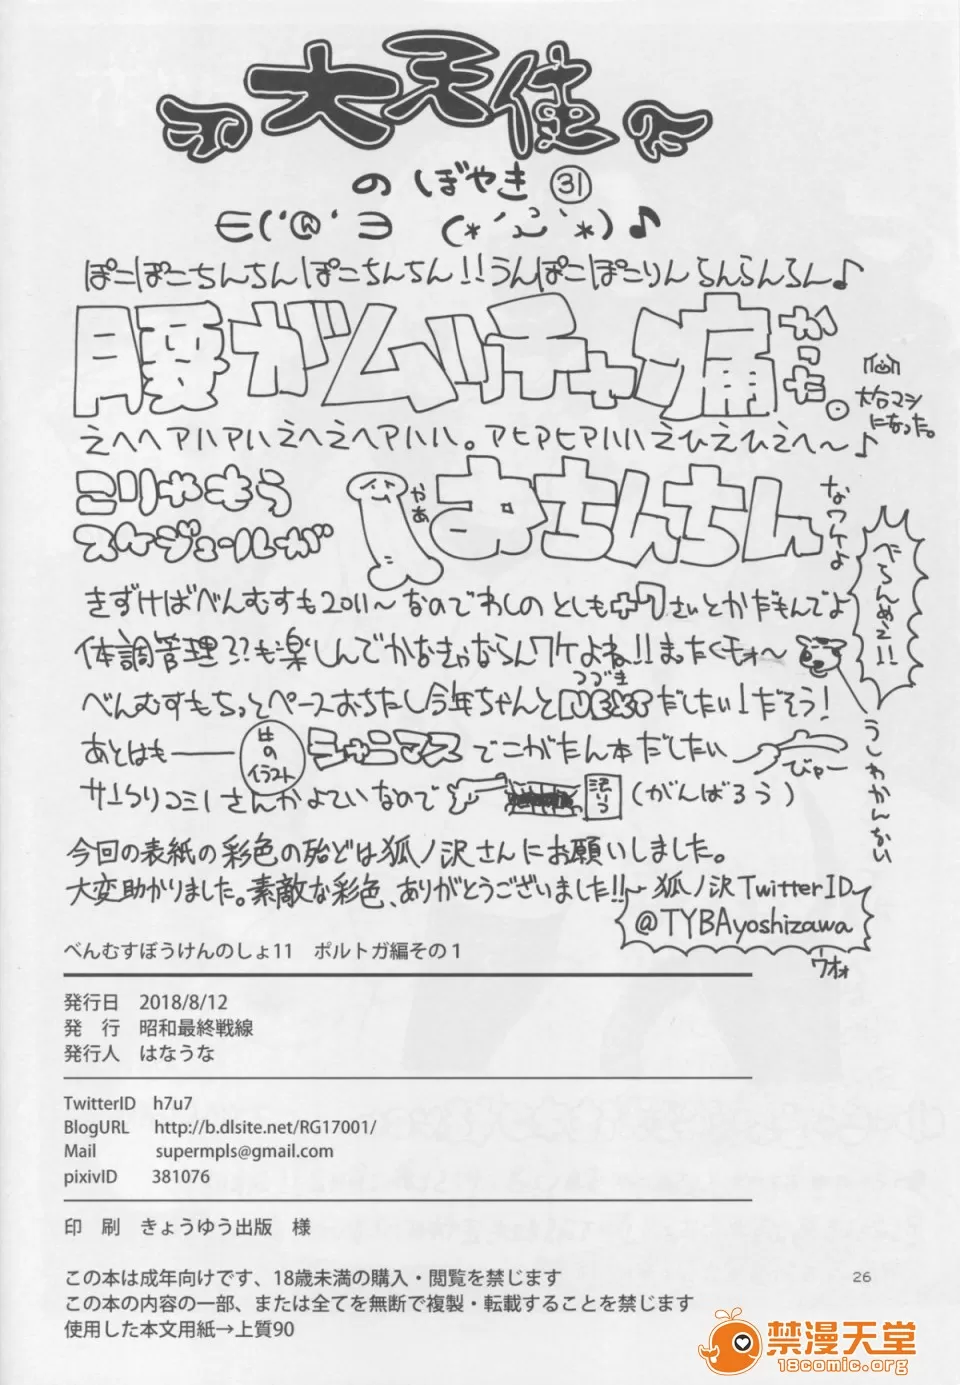 大天使
の ぼやき ㉛
∈('@'∋ (*´ω`*)♪
ぽこぽこちんちんぽこちんちん!!うんぽこぽこりんらんらんらん♪
腰がムッチャ痛かった。
大分マシになった。
えへへアハアハえへえへアハハ。アヒアヒアハハえひえひえへ〜♪
こりゃもう
スケジュールが
やあ
おちんちん
なワケよ
きずけばべんむすも2011〜なのでわしのとしも
さいとかだもんでよ
べらんめえ!!
体調管理??も楽しんでかなきゃならんワケよね!!まったくモォ〜
うしわかんない
つづき
べんむすもちっとペースおちたし今年ちゃんとNEXTだしたい!だそう!
あとはも――
はのイラスト
シャニマスでこがたん本だしたい
びゃー
(がんばろう)
今回の表紙の彩色の殆どは狐ノ沢さんにお願いしました。
大変助かりました。素敵な彩色、ありがとうございました!!
狐ノ沢TwitterID
@TYBAyoshizawa
ウオォ
べんむすぼうけんのしょ11　ポルトガ編その1
発行日　2018/8/12
発　行　昭和最終戦線
発行人　はなうな
TwitterID　h7u7
BlogURL　http://b.dlsite.net/RG17001/
Mail　supermpls@gmail.com
pixivID　381076
印　刷　きょうゆう出版　様
この本は成年向けです、18歳未満の購入・閲覧を禁じます
この本の内容の一部、または全てを無断で複製・転載することを禁じます
使用した本文用紙→上質90
26
禁漫天堂
18comic.org